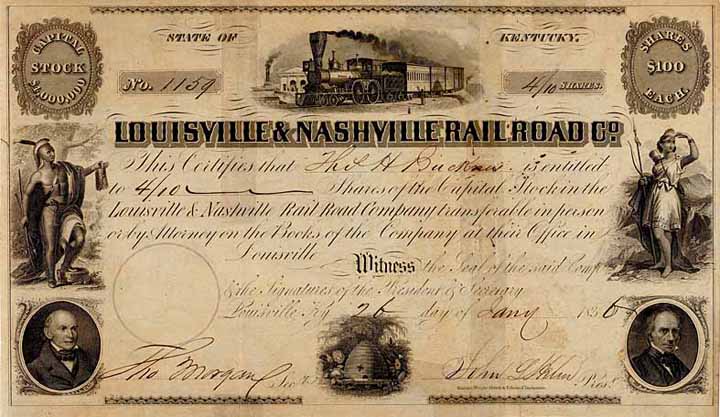 STATE OF KENTUCKY.
CAPITAL STOCK $3,000,000
SHARES $100 EACH.
No. 1159
4/10 SHARES.
LOUISVILLE & NASHVILLE RAIL ROAD Co.
This Certifies that Tho H Buckner is entitled
to 4/10 Shares of the Capital Stock in the
Louisville & Nashville Rail Road Company transferable in person
or by Attorney on the Books of the Company at their Office in
Louisville
Witness the Seal of the said Comp
& the Signatures of the President & Secretary
Louisville, Ky 26 day of Jany 1856
Tho Morgan Sec
John L Helm Prest